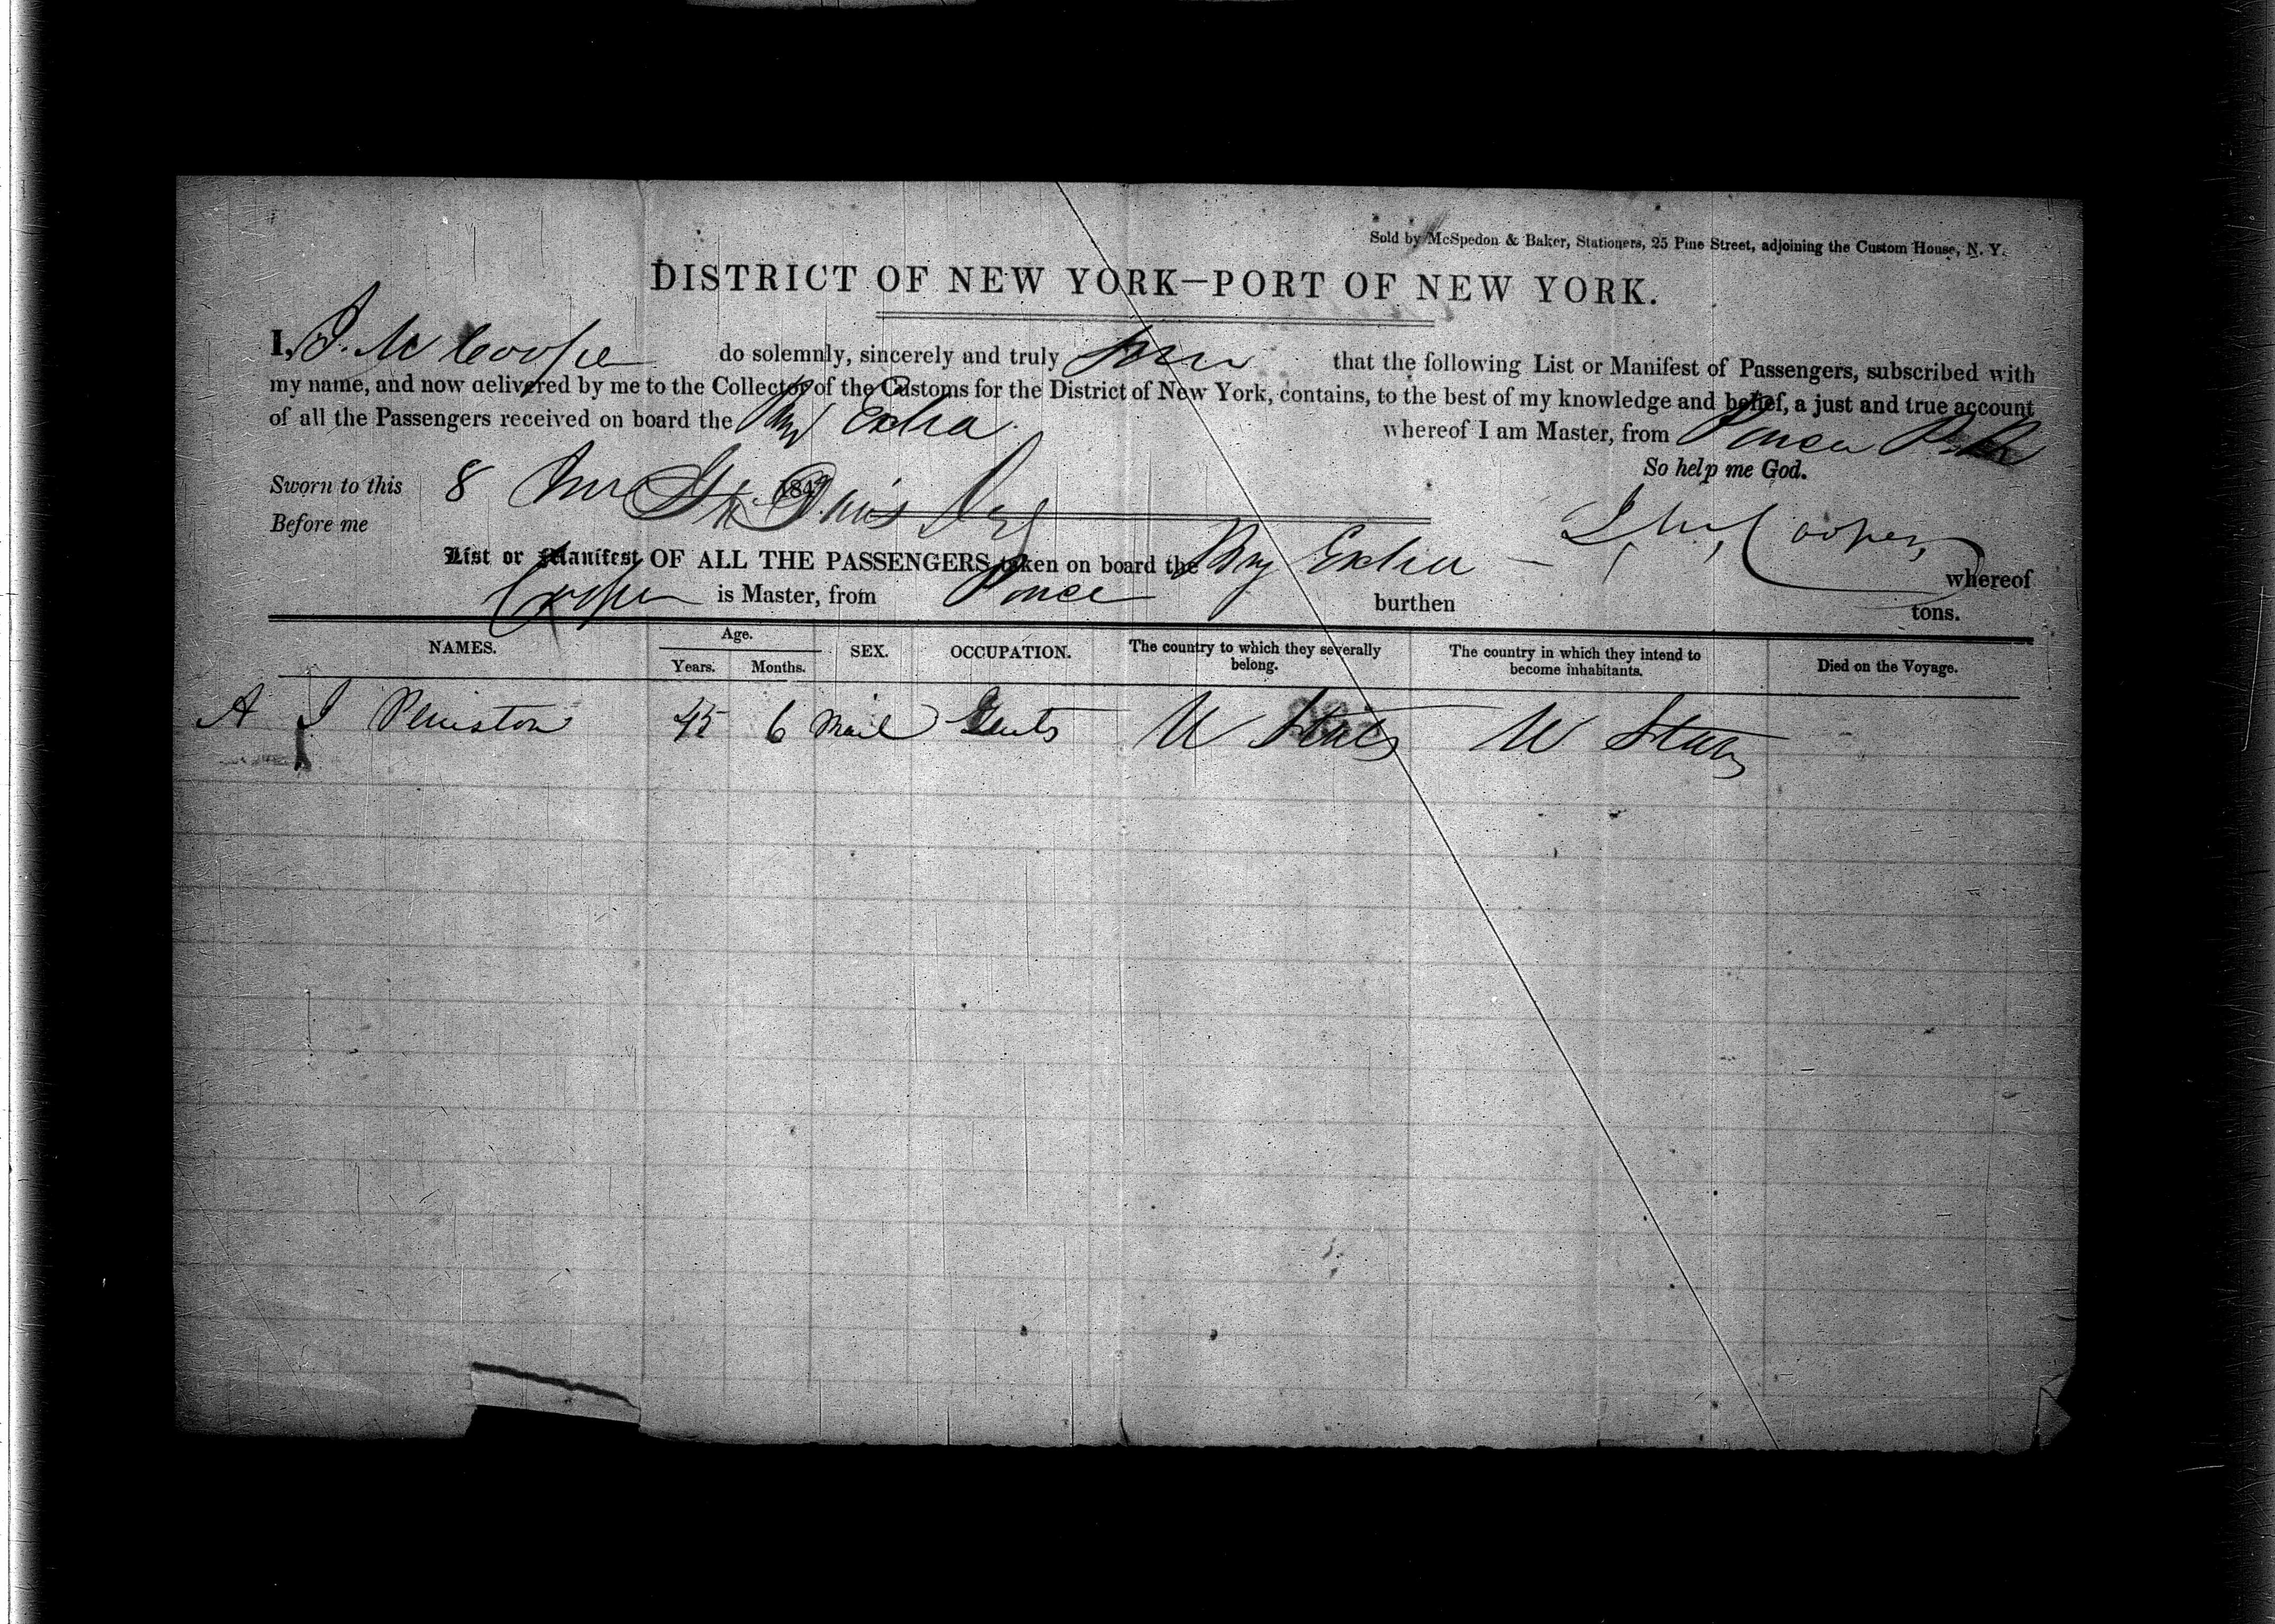 Sold by McSpedon & Baker, Stationers, 25 Pine Street, adjoining the Custom House, N. Y.
DISTRICT OF NEW YORK—PORT OF NEW YORK.
I, J. M Cooper do solemnly, sincerely and truly that the following List or Manifest of Passengers, subscribed with
my name, and now delivered by me to the Collector of the Customs for the District of New York, contains, to the best of my knowledge and belief, a just and true account
of all the Passengers received on board the Extra whereof I am Master, from Ponce P. R
So help me God.
Sworn to this 8 184
Before me
List or Manifest OF ALL THE PASSENGERS taken on board the Brig Extra whereof
Cooper is Master, from Ponce burthen tons.
NAMES. Age. Years. Months. SEX. OCCUPATION. The country to which they severally belong. The country in which they intend to become inhabitants. Died on the Voyage.
A J Peniston 45 6 Male Gents U States U States